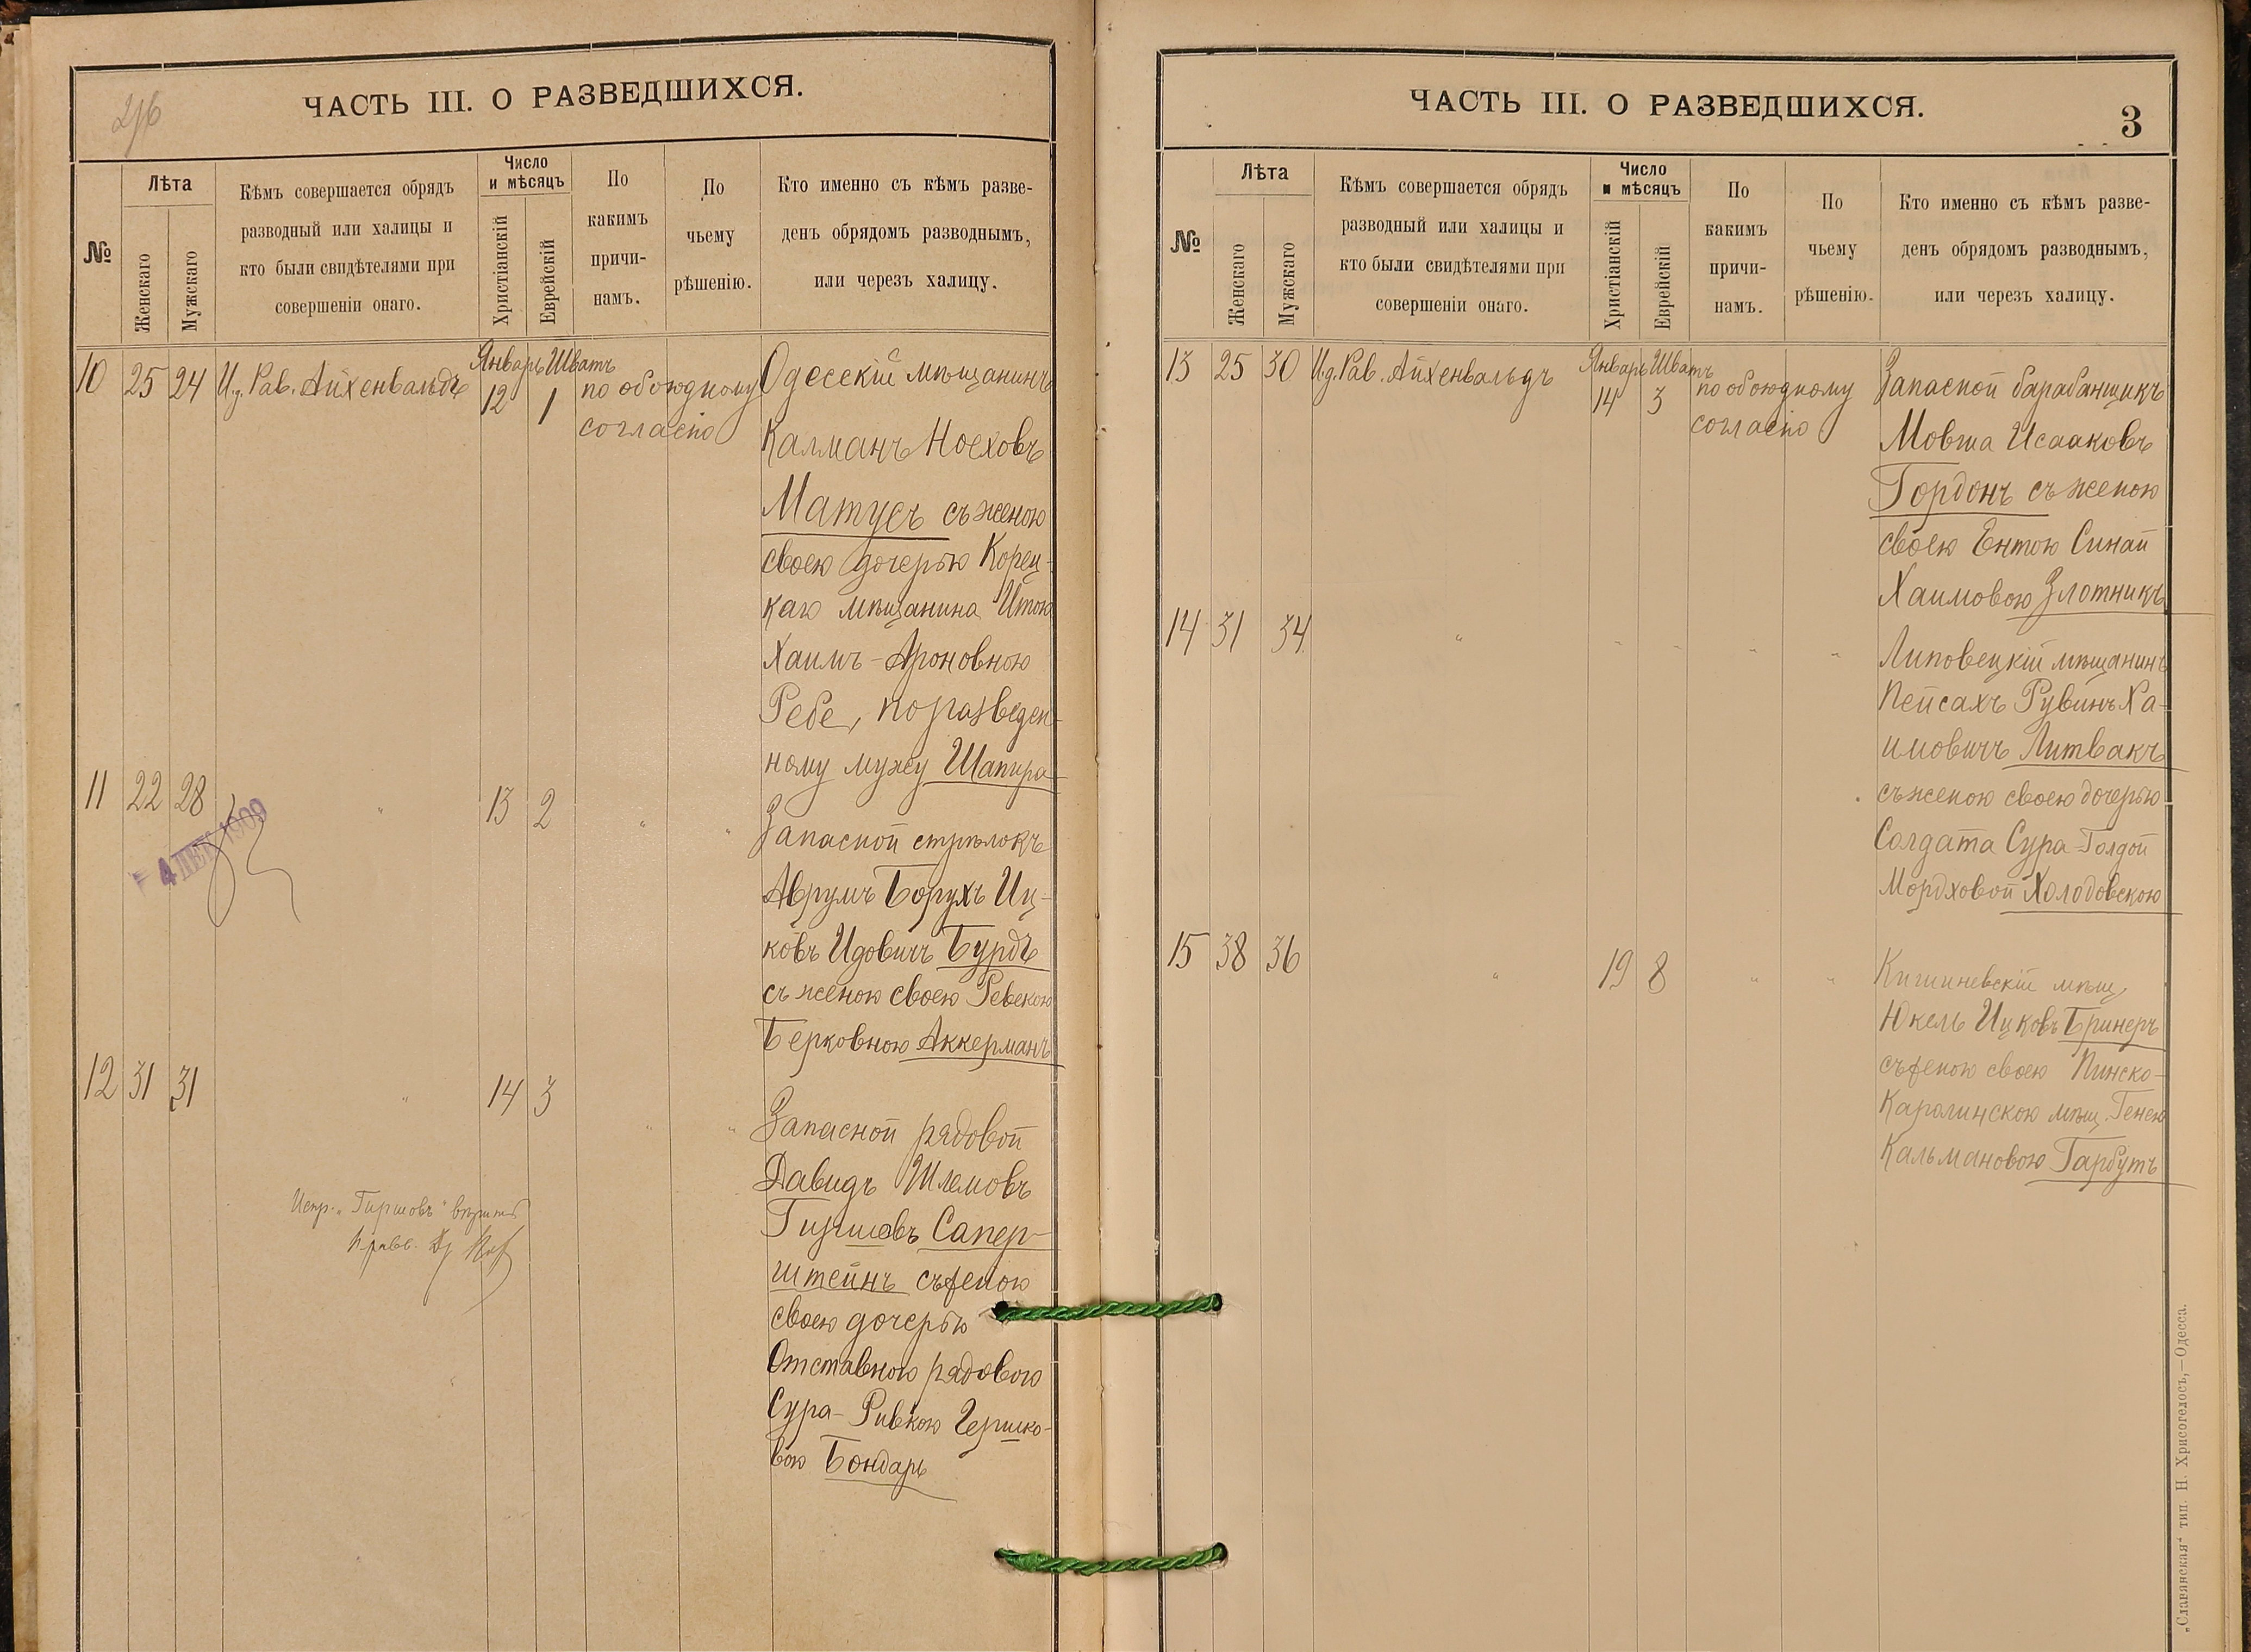 ЧАСТЬ III. О РАЗВЕДШИХСЯ.
№
Лѣта
Женскаго
Мужскаго
Кѣмъ совершается обрядъ
разводный или халицы и
кто были свидѣтелями при
совершеніи онаго.
Число
и мѣсяцъ
Христіанскій
Еврейскій
По
какимъ
причи-
намъ.
По
чьему
рѣшенію.
Кто именно съ кѣмъ разве-
денъ обрядомъ разводнымъ,
или черезъ халицу.
10 25 24 И.д. Рав. Айхенвальдъ
Январь Шватъ
12 1
по обоюдному
согласію
Одесскій мѣщанинъ
Калманъ Ноеховъ
Матусъ съ женою
своею дочерью Корец-
каго мѣщанина Итою
Хаимъ-Ароновною
Ребе, по разведен-
ному мужу Шапира
11 22 28 " 13 2 " "
4 ДЕК 1909
Запасной стрѣлокъ
Аврумъ Борухъ Иц-
ковъ Идовичъ Бурдъ
съ женою своею Ревекою
Берковною Аккерманъ
12 31 31 " 14 3 " "
Запасной рядовой
Давидъ Шлемовъ
Гиршовъ Сапер-
штейнъ съ женою
своею дочерью
Отставного рядового
Сура-Ривкою Гершко-
вою Бондарь
Испр. „Гиршовъ" вѣрить
ЧАСТЬ III. О РАЗВЕДШИХСЯ.
3
№
Лѣта
Женскаго
Мужскаго
Кѣмъ совершается обрядъ
разводный или халицы и
кто были свидѣтелями при
совершеніи онаго.
Число
и мѣсяцъ
Христіанскій
Еврейскій
По
какимъ
причи-
намъ.
По
чьему
рѣшенію.
Кто именно съ кѣмъ разве-
денъ обрядомъ разводнымъ,
или черезъ халицу.
13 25 30 И.д. Рав. Айхенвальдъ
Январь Шватъ
14 3
по обоюдному
согласію
Запасной барабанщикъ
Мовша Исааковъ
Гордонъ съ женою
своею Ентою Синай
Хаимовою Злотникъ
14 31 34 " " " " "
Липовецкій мѣщанинъ
Пейсахъ Рувинъ Ха-
имовичъ Литвакъ
съ женою своею дочерью
Солдата Сура-Голдой
Мордховой Холодовскою
15 38 36 " 19 8 " "
Кишиневскій мѣщ.
Юкель Ицковъ Бринеръ
съ женою своею Пинско-
Каролинскою мѣщ. Генею
Кальмановою Гарбутъ
„Славянская" тип. Н. Хрисогелосъ,—Одесса.